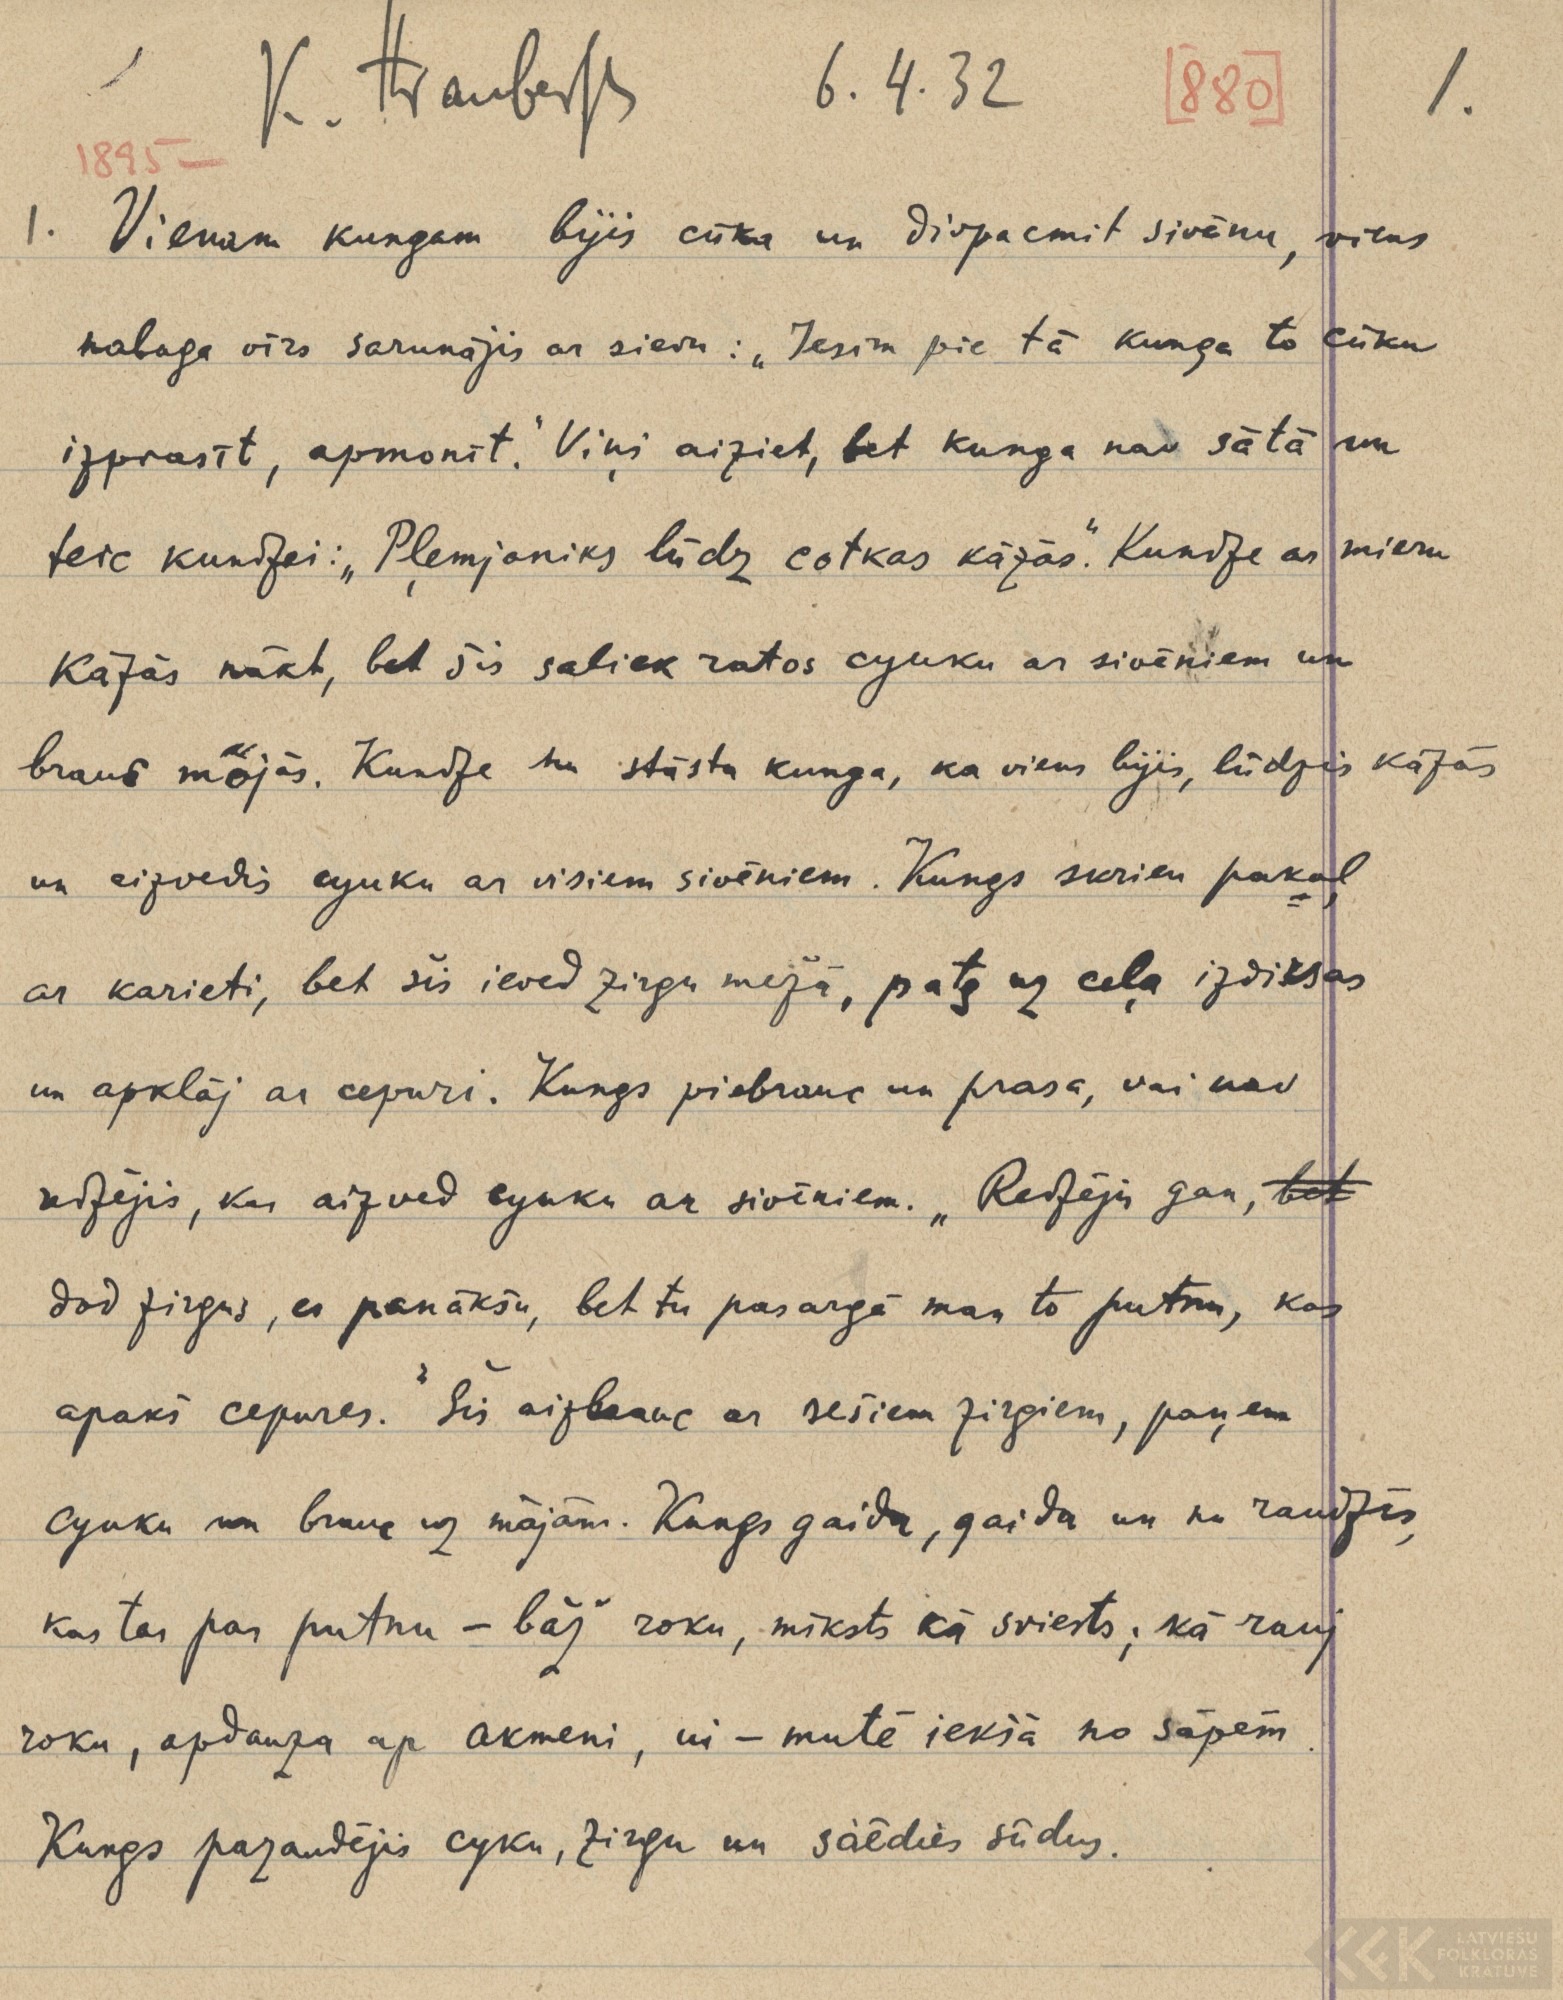 K. Straubergs 6.4.32 [880] 1.
1895—
1. Vienam kungam bijis cūka un divpacmit sivēnu, viens
nabaga vīrs sarunājis ar sievu: „Iesim pie tā kunga to cūku
izprasīt, apmonīt." Viņi aiziet, bet kunga nav sātā un
teic kundzei: „Pļemjaniks lūdz cotkas kāzās". Kundze ar mieru
kāzās nākt, bet šis saliek ratos cyuku ar sivēniem un
brauc mājās. Kundze nu stāsta kunga, ka viens bijis, lūdzis kāzās
un aizvedis cyuku ar visiem sivēniem. Kungs skrien pakaļ
ar karieti, bet šis ieved zirgu mežā, pats uz ceļa izdirsas
un apklāj ar cepuri. Kungs piebrauc un prasa, vai nav
redzējis, kas aizved cyuku ar sivēniem. „Redzēju gan, bet
dod zirgus, es panākšu, bet tu pasargā man to putnu, kas
apakš cepures." Šis aizbrauc ar sešiem zirgiem, paņem
cyuku un brauc uz mājām. Kungs gaida, gaida un nu raudzīs,
kas tas par putnu – bāž roku, mīksts kā sviests; kā rauj
roku, apdauza ap akmeni, ui – mutē iekšā no sāpēm.
Kungs pazaudējis cyku, zirgu un saēdies sūdus.
LATVIEŠU
FOLKLORAS
KRATUVE